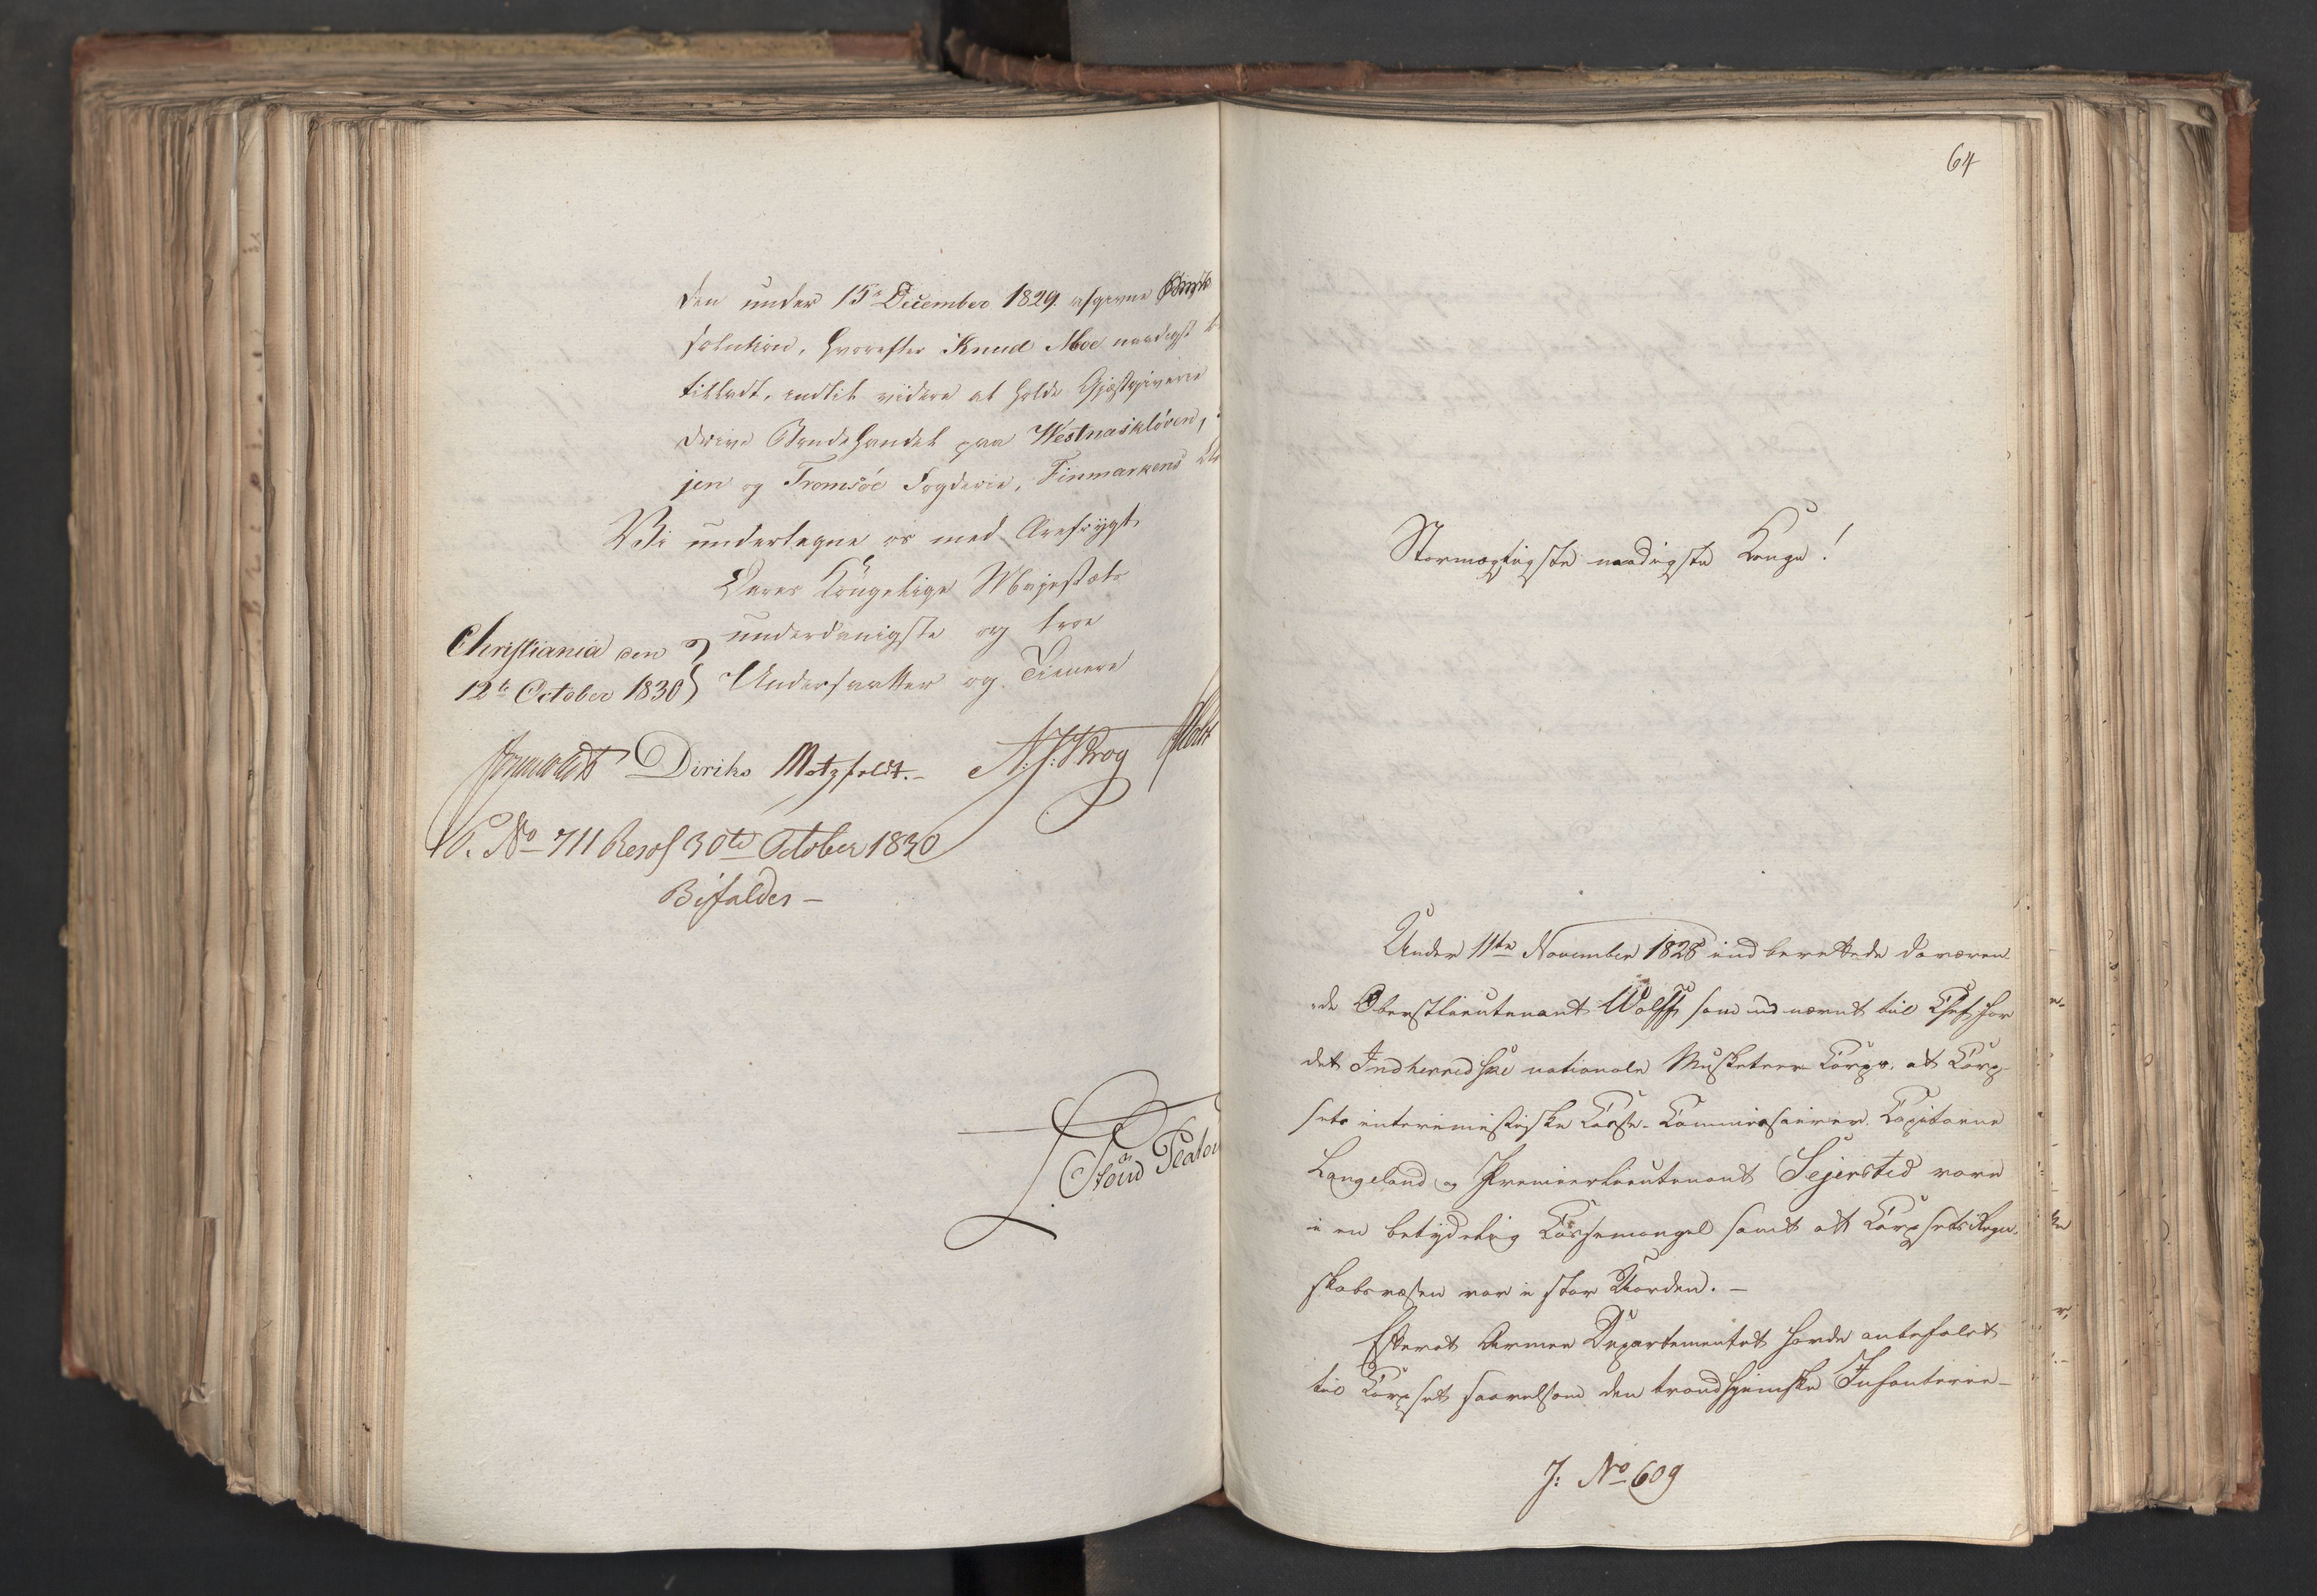 den under 15de December 1829 afgivne
solution, hvorefter Knud Moe naadigst
tilladt, indtil videre at holde Gjæstgiverie
drive Bondehandel paa Westnæsklöven,
jen og Tromsöe Fogderie, Finmarkens
Vi undertegne os med Ærefrygt
Deres Kongelige Majestæts
underdanigste og troe
Christiania den
12te October 1830
Undersaatter og Tienere
Diriks Motzfeldt. N. J. Krog Holst
P. No 711 Resol 30te October 1830
Bifaldes —
64
Stormægtigste naadigste Konge!
Under 11te November 1828 indberettede daværen-
de Oberstlieutenant Wolff som udnævnt til Chef for
det Indherredske nationale Musketeer Corps, at Corp-
sets interimistiske Casse-Commissairer Capitaine
Langeland og Premierlieutenant Sejersted vare
i en betydelig Cassemangel samt at Corpsets Regn-
skabsvæsen var i stor Uorden. —
Efterat Armee Departementet havde anbefalet
til Corpset saavelsom den trondhjemske Infanterie-
J: No 609